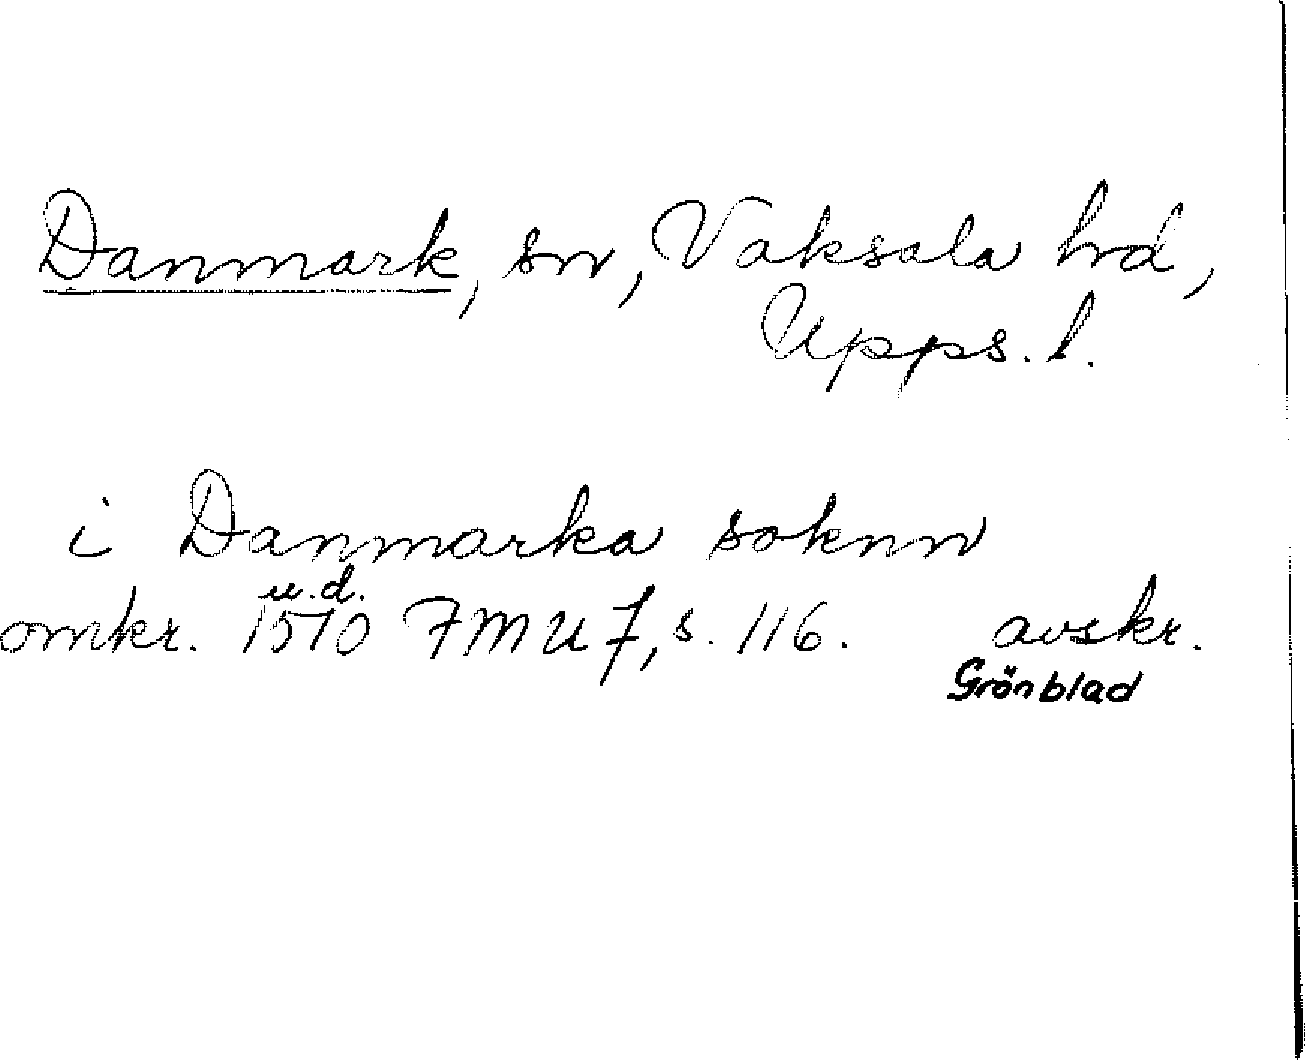 Danmark, sn, Vaksala hd,
Upps. l.
i Danmarka soknn
u. d.
omkr. 1510 FMU 7, s. 116. avskr.
Grönblad